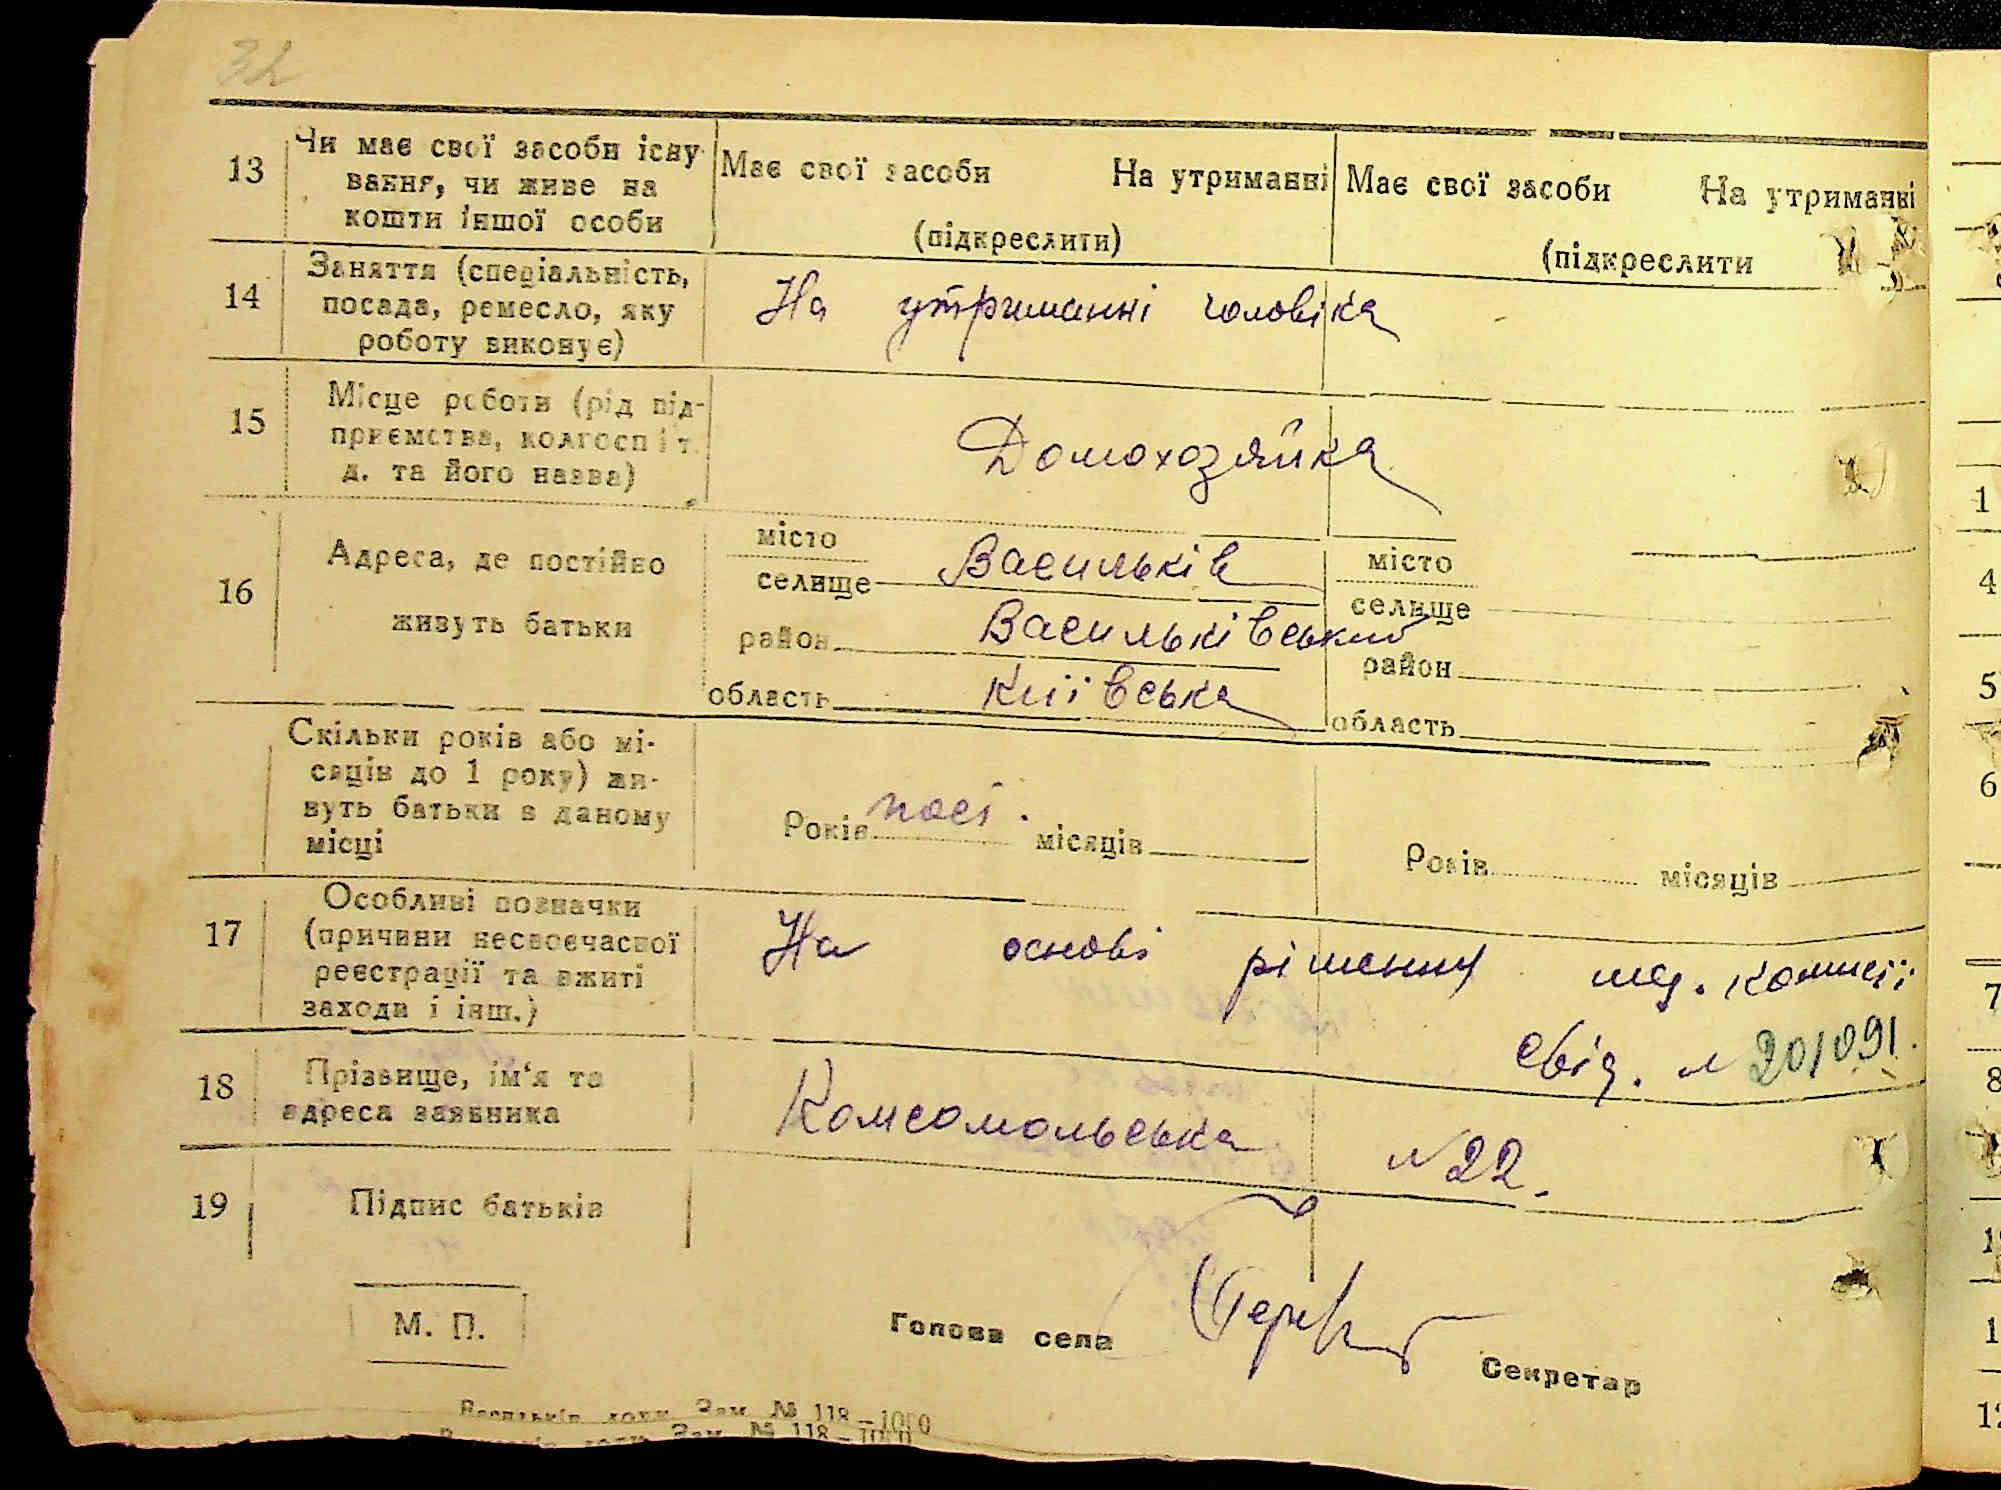 32
13 Чи має свої засоби існу- Має свої засоби На утриманні Має свої засоби На утриманні
вання, чи живе на
кошти іншої особи (підкреслити) (підкреслити
14 Заняття (спеціальність, На утриманні чоловіка
посада, ремесло, яку
роботу виконує)
15 Місце роботи (рід під-
приємства, колгосп і т. Домохозяйка
д. та його назва)
16 Адреса, де постійно
живуть батьки
місто
селище Васильків
район Васильківський
область Київська
місто
селище
район
область
Скільки років або мі-
сяців до 1 року) жи-
вуть батьки в даному
місці
Років пост. місяців Років місяців
17 Особливі позначки
(причини несвоєчасної На основі рішення мед. комисії
реєстрації та вжиті
заходи і інш.) свід. № 201091.
18 Прізвище, ім'я та
адреса заявника Комсомольська №22.
19 Підпис батьків
М. П. Голова села Секретар
Зам. № 118—1000
Зам. № 118—1000
1
4
5
6
7
8